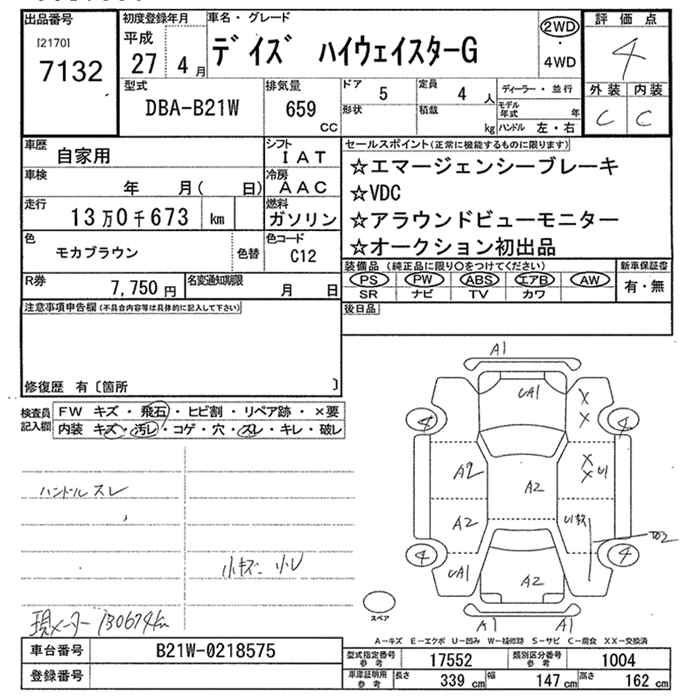 出品番号 初度登録年月 車名・グレード 2WD ・ 4WD 評価点
[2170] 7132 平成 27 4月 デイズ ハイウェイスターG 4
型式 排気量 ドア 5 定員 4人 ディーラー・並行 外装 内装
DBA-B21W 659 CC 形状 積載 kg モデル年式 年 C C
ハンドル 左・右
車歴 自家用 シフト IAT セールスポイント(正常に機能するものに限ります)
車検 年 月( 日) 冷房 AAC ☆エマージェンシーブレーキ
☆VDC
走行 13万0千673 km 燃料 ガソリン ☆アラウンドビューモニター
色 モカブラウン 色替 色コード C12 ☆オークション初出品
R券 7,750円 名変通知期限 月 日 装備品(純正品に限り〇をつけてください) 新車保証書
PS PW ABS エアB AW 有・無
SR ナビ TV カワ
注意事項申告欄(不具合内容等は具体的に記入して下さい) 後日品
修復歴 有〔箇所 〕
検査員記入欄 FW キズ・飛石・ヒビ割・リペア跡・×要
内装 キズ・汚レ・コゲ・穴・スレ・キレ・破レ
A1
UA1
X
X
4 4
A2 A2 X
X U1
A2
4 4
UA1 A2
A1 A1
ハンドル スレ
小キズ 小レ
現メーター 130674km
スペア
A-キズ E-エクボ U-凹み W-補修跡 S-サビ C-腐食 XX-交換済
車台番号 B21W-0218575 型式指定番号 参考 17552 類別区分番号 参考 1004
登録番号 車庫証明用 参考 長さ 339 cm 幅 147 cm 高さ 162 cm